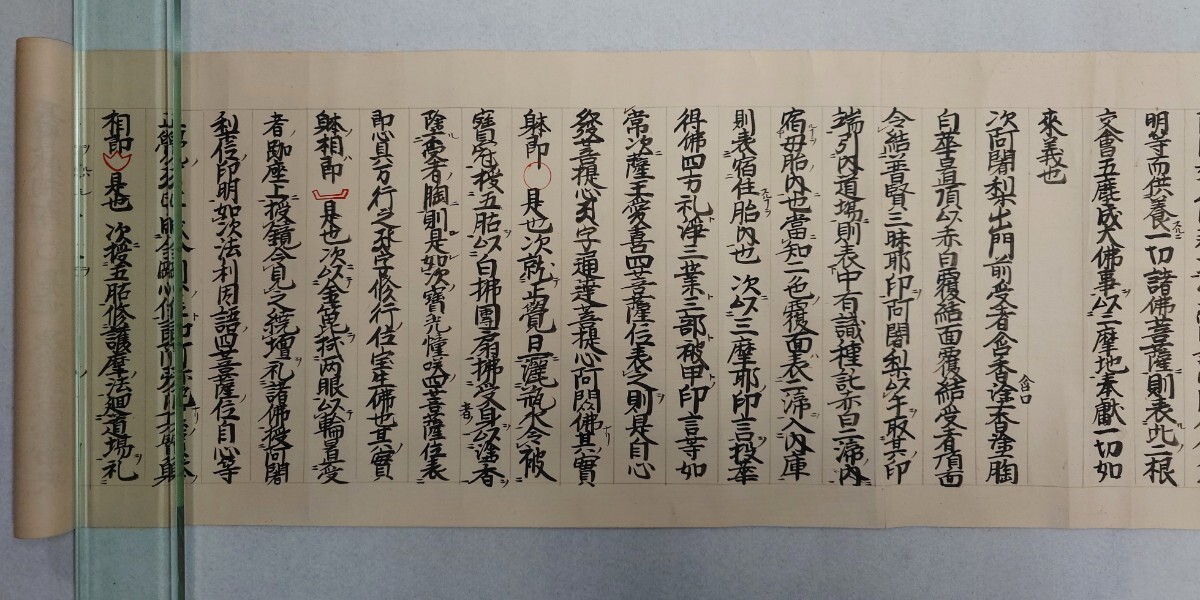 明等而供養一切諸佛菩薩則表此二根
交會五塵成大佛事以三摩地奉獻一切如
來義也
次阿闍梨出門前受者含香塗香塗胸
白華置頂以赤白覆結面覆結受者頂面
令結普賢三昧耶印阿闍梨以午取其印
端引內道場則表中有識種託赤白二渧內
宿母胎內也當知二色覆面表二渧入內庫
則表宿住胎內也 次以三摩耶印言投華
得佛四方礼淨三業三部被甲印言等如
常次薩王愛喜四菩薩位表之則是自心
發菩提心 字通達菩提心阿閦佛其實
躰即 是也次就正覺旦灑瓶水令被
寶冠授五股以白拂團扇拂受身以塗香
塗受者胸則是如次寶光幢咲四菩薩位表
即息具万行之 修行位宝生佛也其實
躰相即 是也次以金箆拭两眼以輪置受
者跏座上授鏡令見之繞壇礼諸佛授阿闍
梨位印明如次法利因語四菩薩位自心等
相即 是也 次授五股修護摩法廻道場礼